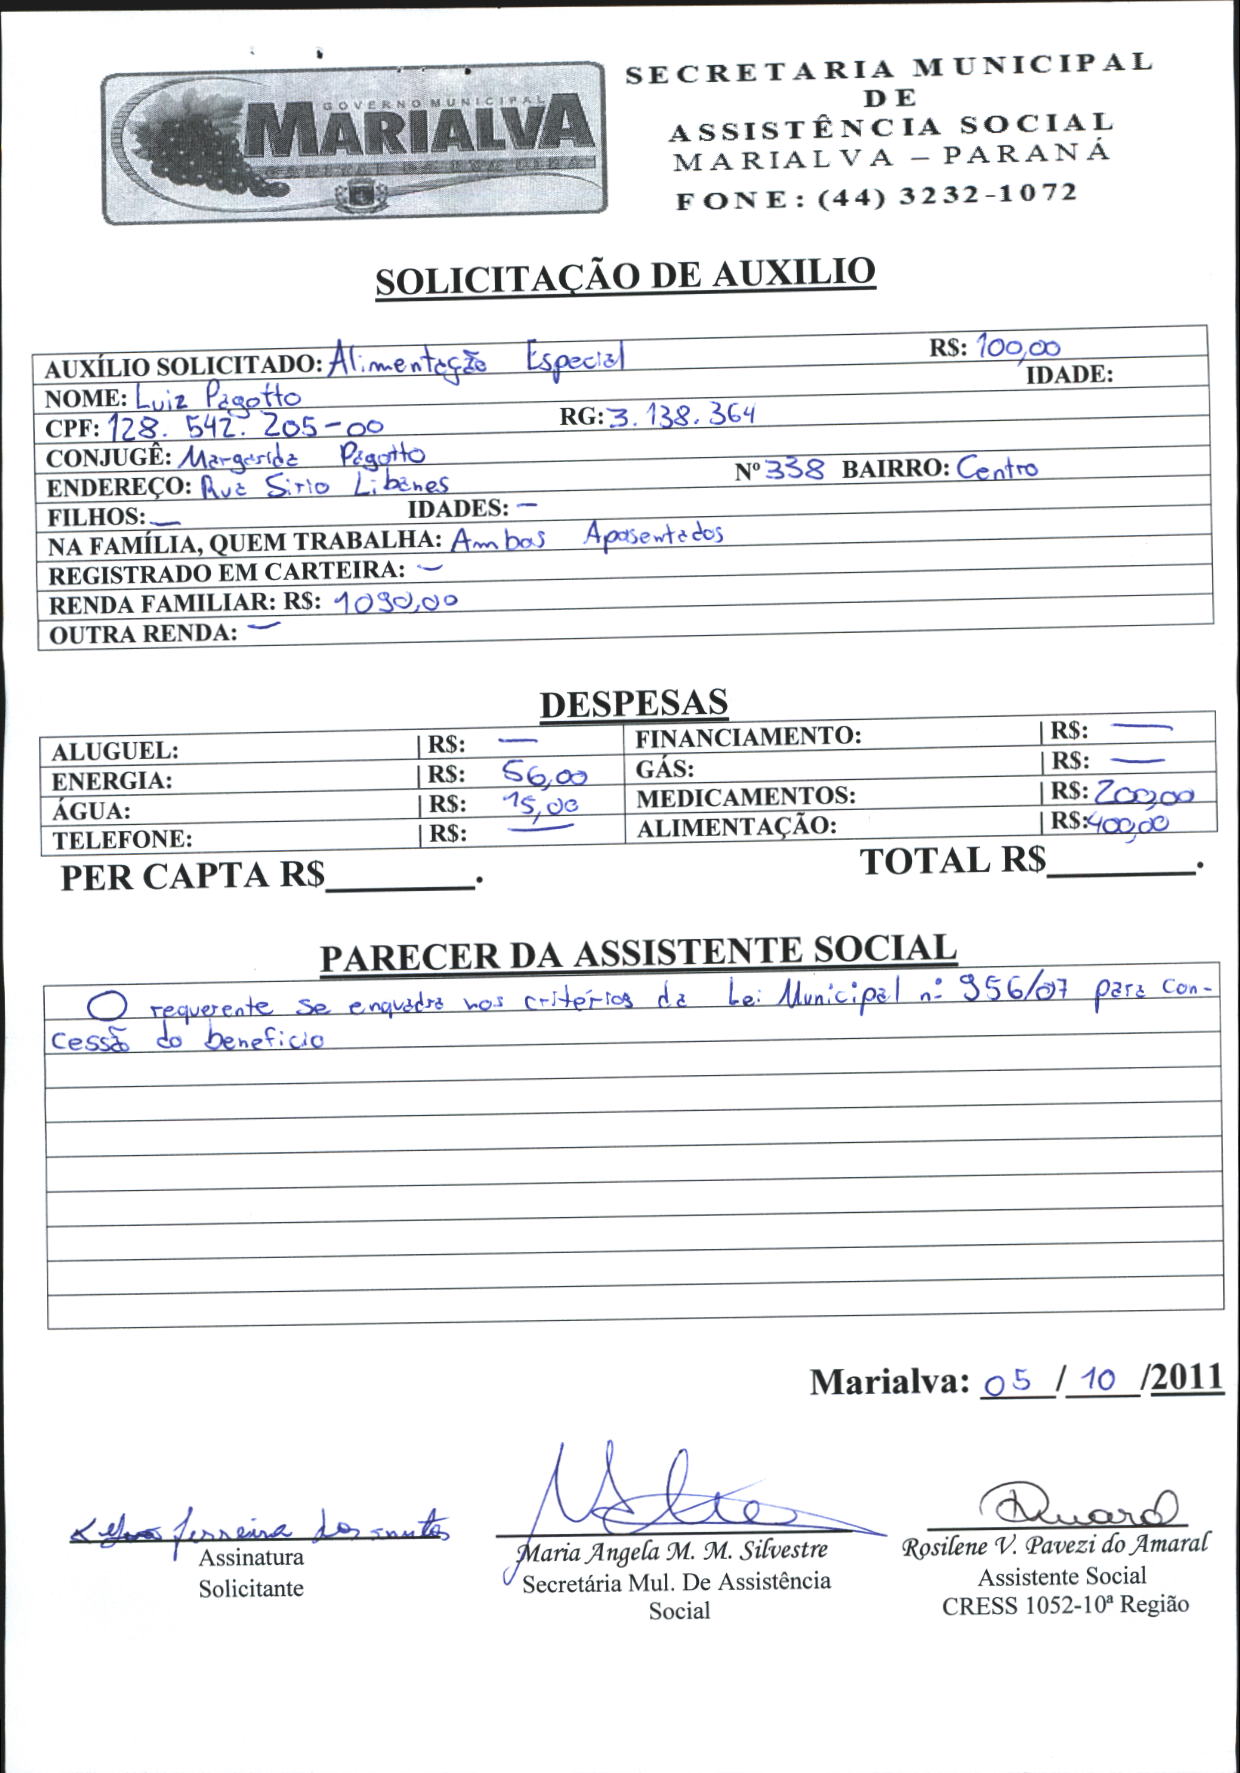 GOVERNO MUNICIPAL
MARIALVA
CAPITAL DA UVA FINA
SECRETARIA MUNICIPAL
DE
ASSISTÊNCIA SOCIAL
MARIALVA – PARANÁ
FONE: (44) 3232-1072
SOLICITAÇÃO DE AUXILIO
AUXÍLIO SOLICITADO: Alimentação Especial R$: 100,00
NOME: Luiz Pagotto IDADE:
CPF: 128.542.205-00 RG: 3.138.364
CONJUGÊ: Margarida Pagotto
ENDEREÇO: Rua Sirio Libanes Nº 338 BAIRRO: Centro
FILHOS: — IDADES: —
NA FAMÍLIA, QUEM TRABALHA: Ambos Aposentados
REGISTRADO EM CARTEIRA: —
RENDA FAMILIAR: R$: 1090,00
OUTRA RENDA: —
DESPESAS
ALUGUEL: | R$: — FINANCIAMENTO: | R$: —
ENERGIA: | R$: 56,00 GÁS: | R$: —
ÁGUA: | R$: 15,00 MEDICAMENTOS: | R$: 200,00
TELEFONE: | R$: — ALIMENTAÇÃO: | R$: 400,00
PER CAPTA R$________. TOTAL R$________.
PARECER DA ASSISTENTE SOCIAL
O requerente se enquadra nos critérios da Lei Municipal nº 956/07 para con-
cessão do beneficio
Marialva: 05 / 10 /2011
Ferreira dos santos
Assinatura
Solicitante
Maria Angela M. M. Silvestre
Secretária Mul. De Assistência
Social
Rosilene V. Pavezi do Amaral
Assistente Social
CRESS 1052-10ª Região